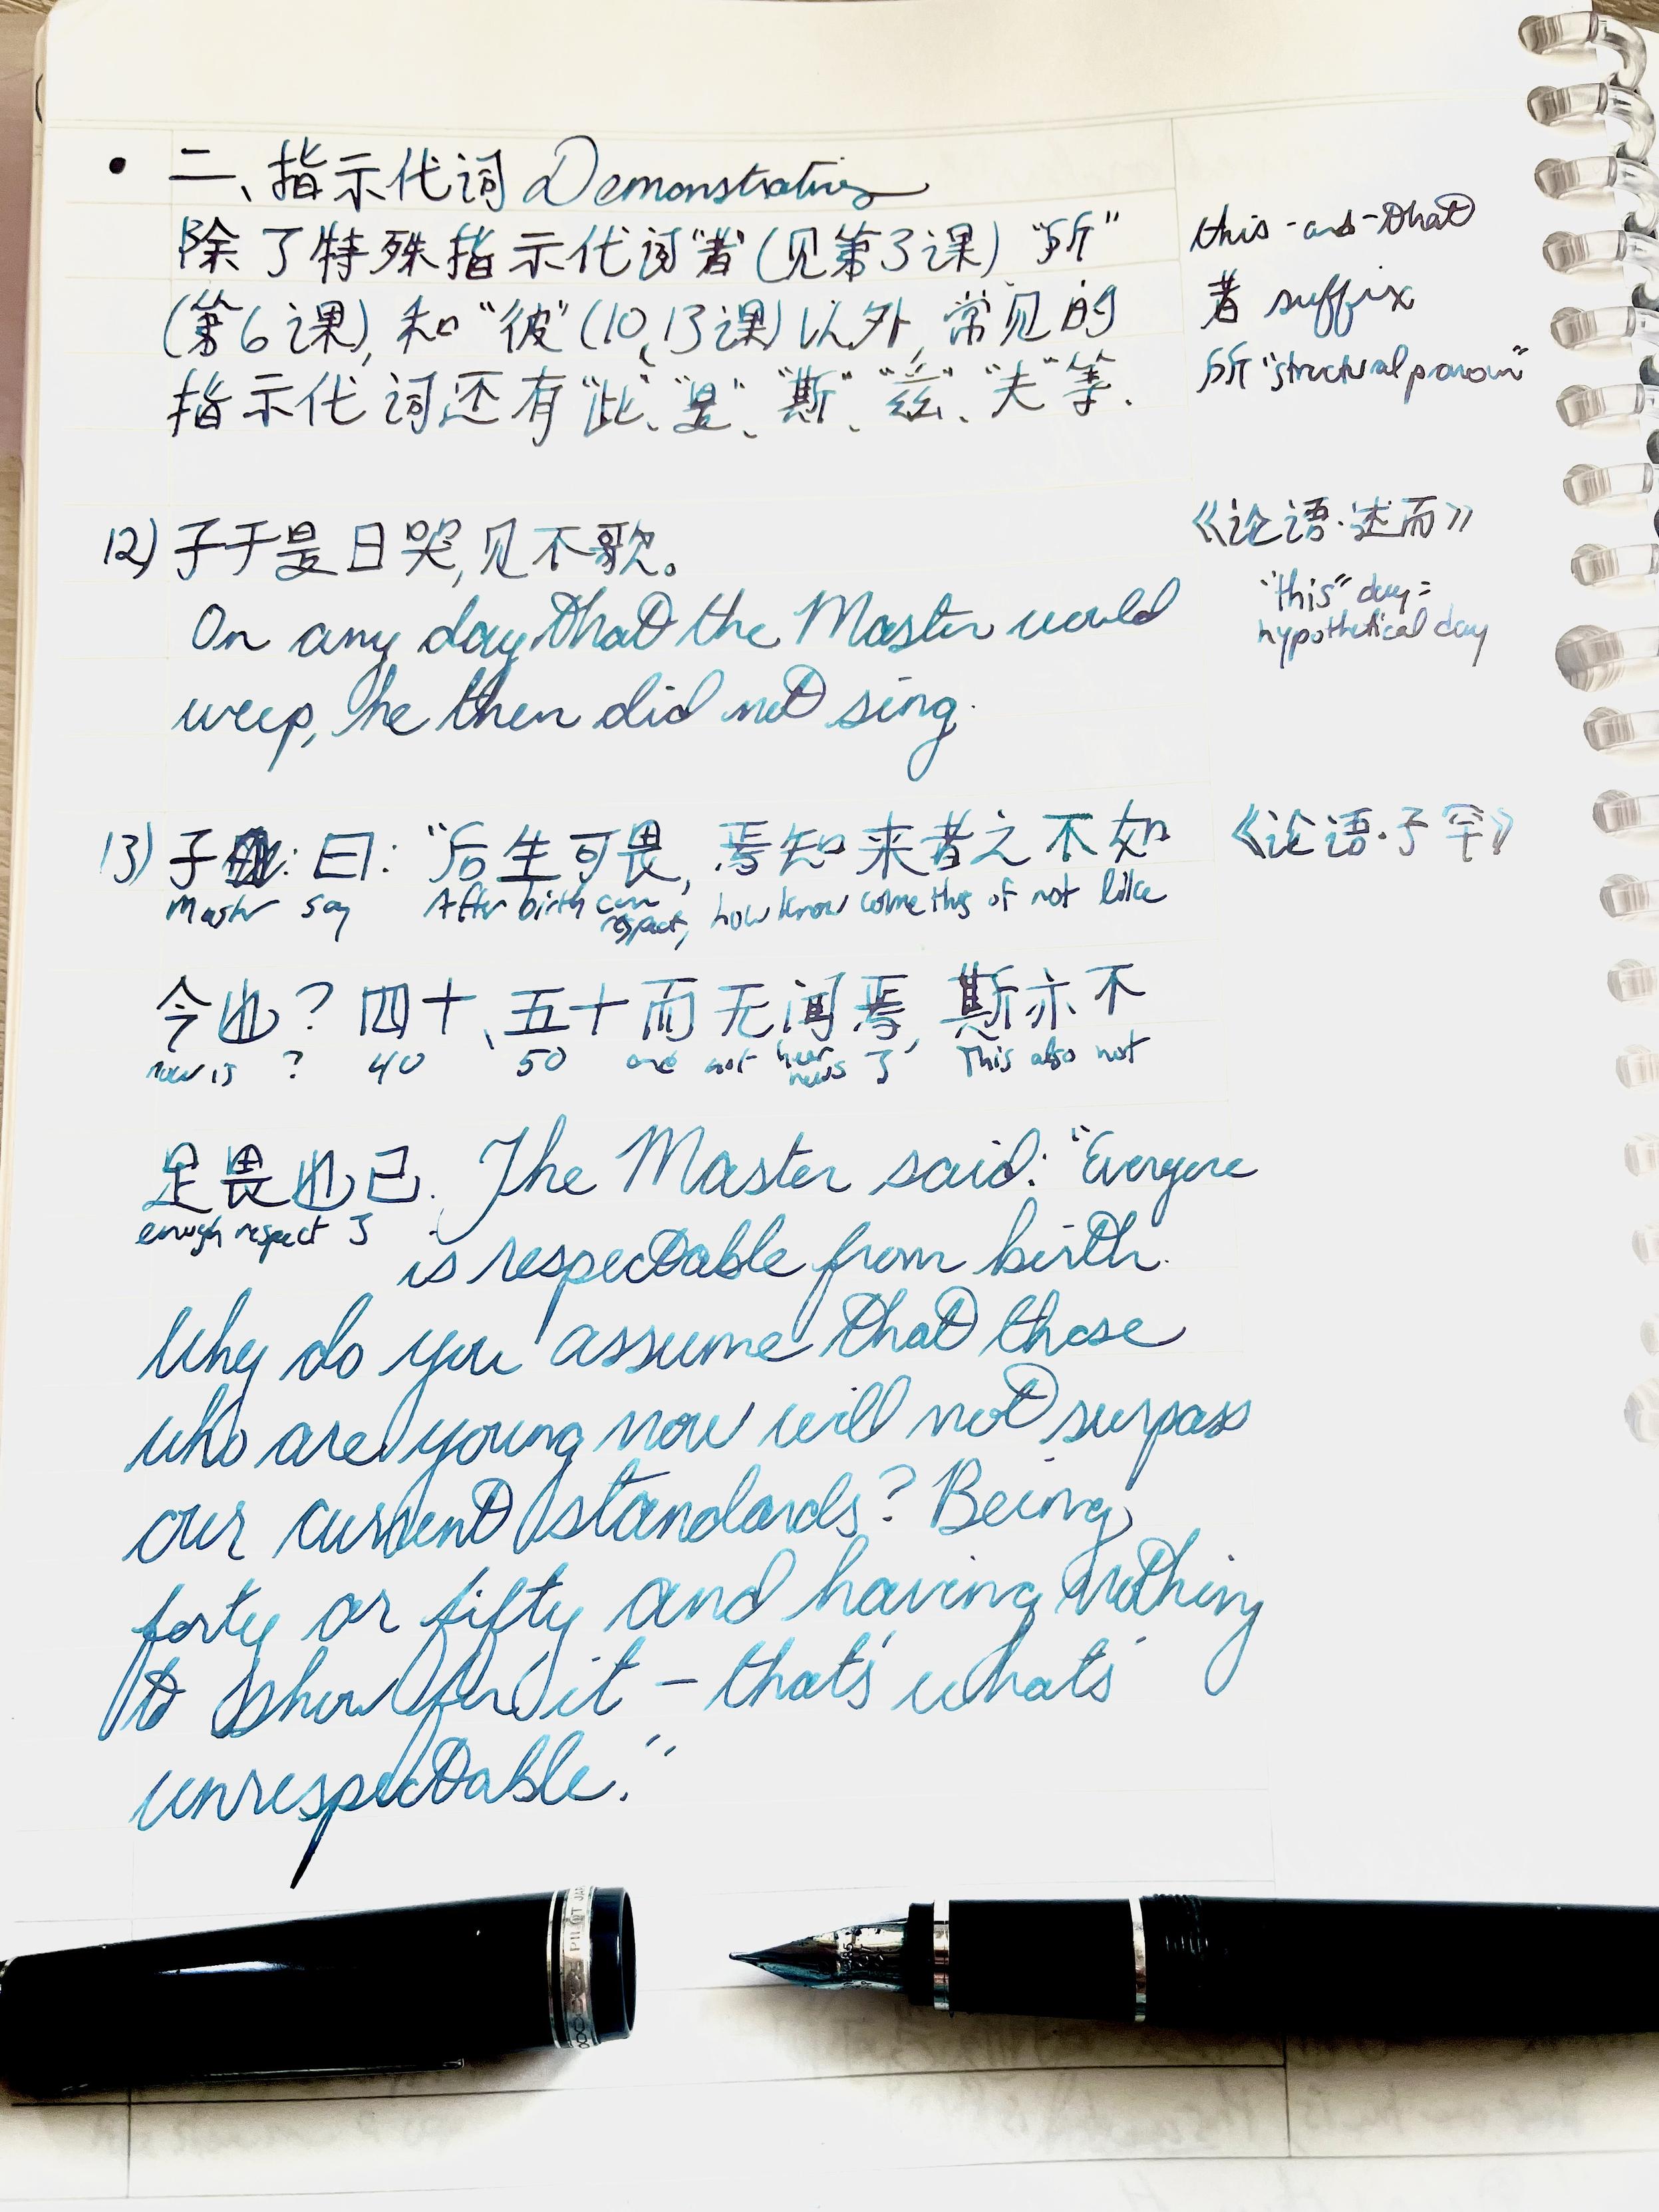 • 二、指示代词 Demonstratives
除了特殊指示代词"者"(见第3课) "所"
(第6课), 和"彼"(10、13课)以外, 常见的
指示代词还有"此"、"是"、"斯"、"兹"、"夫"等.
this-and-that
者 suffix
所 "structural pronoun"
12) 子于是日哭, 见不歌。
《论语·述而》
"this" day =
hypothetical day
On any day that the Master would
weep, he then did not sing.
13) 子 : 曰: "后生可畏, 焉知来者之不如
《论语·子罕》
Master say After birth can respect, how know come thg of not like
今也? 四十、五十而无闻焉, 斯亦不
now is ? 40 50 and not hear news 了, This also not
足畏也己.
enough respect 了
The Master said: "Everyone
is respectable from birth.
Why do you assume that those
who are young now will not surpass
our current standards? Being
forty or fifty and having nothing
to show for it – that's what's
unrespectable."
PILOT JAPAN